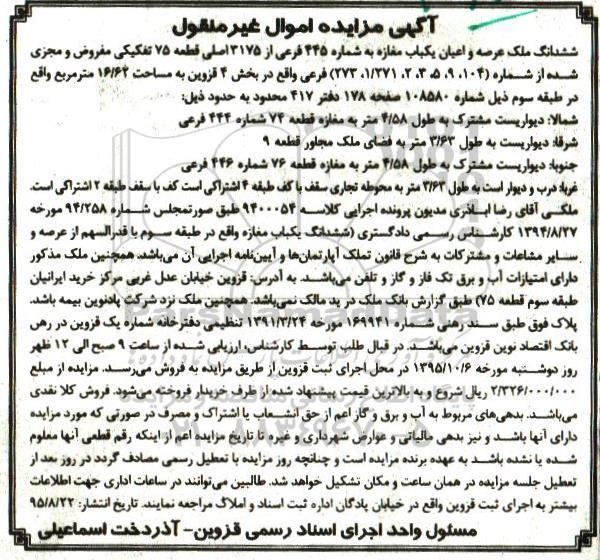 آگهی مزایده اموال غیر منقول
ششدانگ ملک عرصه و اعیان یکباب مغازه به شماره ۴۴۵ فرعی از ۳۱۷۵ اصلی قطعه ۷۵ تفکیکی مفروض و مجزی
شده از شماره (۱۰۴، ۹، ۵، ۳، ۲، ۱/۲۷۱، ۲۷۳) فرعی واقع در بخش ۴ قزوین به مساحت ۱۶/۶۲ مترمربع واقع
در طبقه سوم ذیل شماره ۱۰۸۵۸۰ صفحه ۱۷۸ دفتر ۴۱۷ محدود به حدود ذیل:
شمالا: دیواریست مشترک به طول ۴/۵۸ متر به مغازه قطعه ۷۴ شماره ۴۴۴ فرعی
شرقا: دیواریست به طول ۳/۶۳ متر به فضای ملک مجاور قطعه ۹
جنوبا: دیواریست مشترک به طول ۴/۵۸ متر به مغازه قطعه ۷۶ شماره ۴۴۶ فرعی
غربا: درب و دیوار است به طول ۳/۶۳ متر به محوطه تجاری سقف با کف طبقه ۴ اشتراکی است کف با سقف طبقه ۲ اشتراکی است.
ملکی آقای رضا اباذری مدیون پرونده اجرایی کلاسه ۹۴۰۰۰۵۴ طبق صورتمجلس شماره ۹۴/۲۵۸ مورخه
۱۳۹۴/۸/۲۷ کارشناس رسمی دادگستری (ششدانگ یکباب مغازه واقع در طبقه سوم با قدرالسهم از عرصه و
سایر مشاعات و مشترکات به شرح قانون تملک آپارتمان‌ها و آیین‌نامه اجرایی آن می‌باشد. همچنین ملک مذکور
دارای امتیازات آب و برق تک فاز و گاز و تلفن می‌باشد. به آدرس: قزوین خیابان عدل غربی مرکز خرید ایرانیان
طبقه سوم قطعه ۷۵) طبق گزارش بانک ملک در ید مالک نمی‌باشد. همچنین ملک نزد شرکت پادنوین بیمه باشد.
پلاک فوق طبق سند رهنی شماره ۱۶۹۹۴۱ مورخه ۱۳۹۱/۲/۲۴ تنظیمی دفترخانه شماره یک قزوین در رهن
بانک اقتصاد نوین قزوین می‌باشند. در قبال طلب توسط کارشناس، ارزیابی شده از ساعت ۹ صبح الی ۱۲ ظهر
روز دوشنبه مورخه ۱۳۹۵/۱۰/۶ در محل اجرای ثبت قزوین از طریق مزایده به فروش می‌رسد. مزایده از مبلغ
۲/۳۲۶/۰۰۰/۰۰۰ ریال شروع و به بالاترین قیمت پیشنهاد شده از طرف خریدار فروخته می‌شود. فروش کلا نقدی
می‌باشد. بدهی‌های مربوط به آب و برق و گاز اعم از حق انشعاب یا اشتراک و مصرف در صورتی که مورد مزایده
دارای آنها باشد و نیز بدهی مالیاتی و عوارض شهرداری و غیره تا تاریخ مزایده اعم از اینکه رقم قطعی آنها معلوم
شده یا نشده باشد به عهده برنده مزایده است و چنانچه روز مزایده با تعطیل رسمی مصادف گردد در روز بعد از
تعطیل جلسه مزایده در همان ساعت و مکان تشکیل خواهد شد. طالبین می‌توانند در ساعات اداری جهت اطلاعات
بیشتر به اجرای ثبت قزوین واقع در خیابان پادگان اداره ثبت اسناد و املاک مراجعه نمایند. تاریخ انتشار: ۹۵/۸/۲۲
مسئول واحد اجرای اسناد رسمی قزوین- آذردخت اسماعیلی